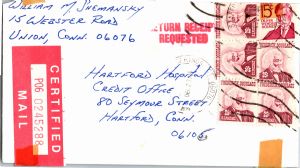 William M Shemansky
15 Webster Road
Union, Conn. 06076
RETURN RECEIPT
REQUESTED
CERTIFIED
MAIL
P06 0245288
Hartford Hospital
Credit Office
80 Seymour Street
Hartford, Conn.
06106